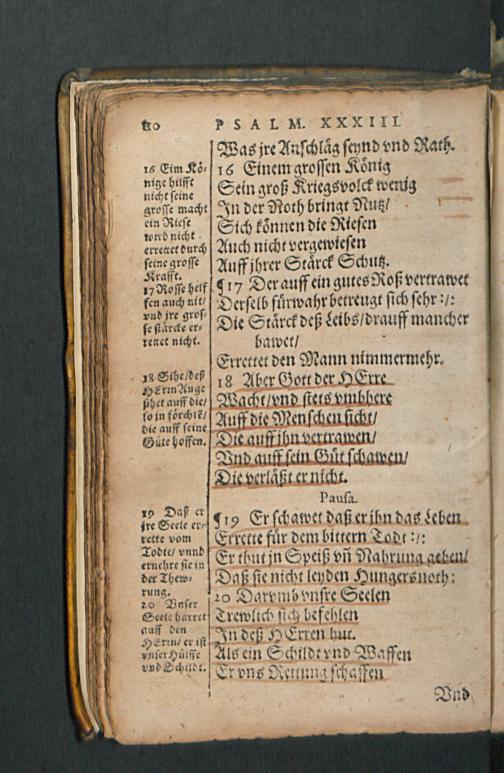 80 PSALM. XXXIII.
Was jre Anschläg seynd vnd Rath.
16 Einem grossen König
Sein groß Kriegsvolck wenig
In der Noth bringt Nutz/
Sich können die Riesen
Auch nicht vergewiesen
Auff jhrer Stärck Schutz.
¶17 Der auff ein gutes Roß vertrawet
Derselb fürwahr betreugt sich sehr :/:
Die Stärck deß Leibs/drauff mancher
bawet/
Errettet den Mann nimmermehr.
18 Aber Gott der HErre
Wacht/vnd stets vmbhere
Auff die Menschen sicht/
Die auff jhn vertrawen/
Vnd auff sein Güt schawen/
Die verläßt er nicht.
Pausa.
¶19 Er schawet daß er jhn das Leben
Errette für dem bittern Todt :/:
Er thut in Speiß vñ Nahrung geben/
Daß sie nicht leyden Hungersnoth:
20 Darvmb vnsre Seelen
Trewlich sich befehlen
In deß HErren hut.
Als ein Schildt vnd Waffen
Er vns Rettung schaffen
Vnd
16 Eim Kö-
nige hilfft
nicht seine
grosse macht
ein Riese
wird nicht
errettet durch
seine grosse
Krafft.
17 Rosse helf
fen auch nit/
vnd jre gros-
se stärcke er-
rettet nicht.
18 Sihe/deß
HErrn Auge
sihet auff die/
so in förchtẽ/
die auff seine
Güte hoffen.
19 Daß er
jre Seele er-
rette vom
Todte/ vnnd
ernehre sie in
der Thew-
rung.
20 Vnser
Seele harret
auff den
HErrn/ er ist
vnser Hülffe
vnd Schildt.